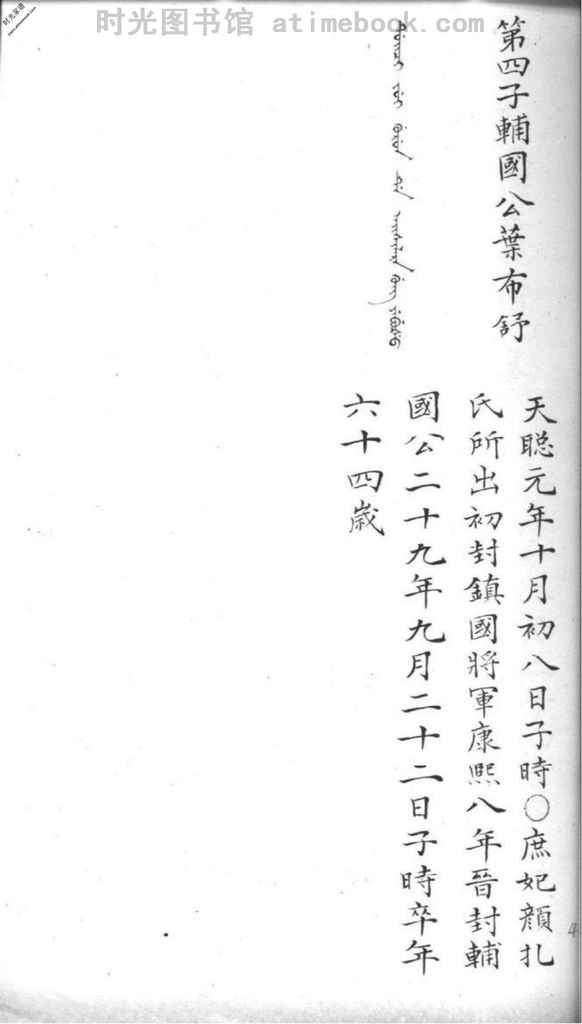 时光图书馆 atimebook.com
第四子輔國公葉布舒
天聡元年十月初八日子時〇庶妃顔扎
氏所出初封鎮國將軍康熙八年晉封輔
國公二十九年九月二十二日子時卒年
六十四歳